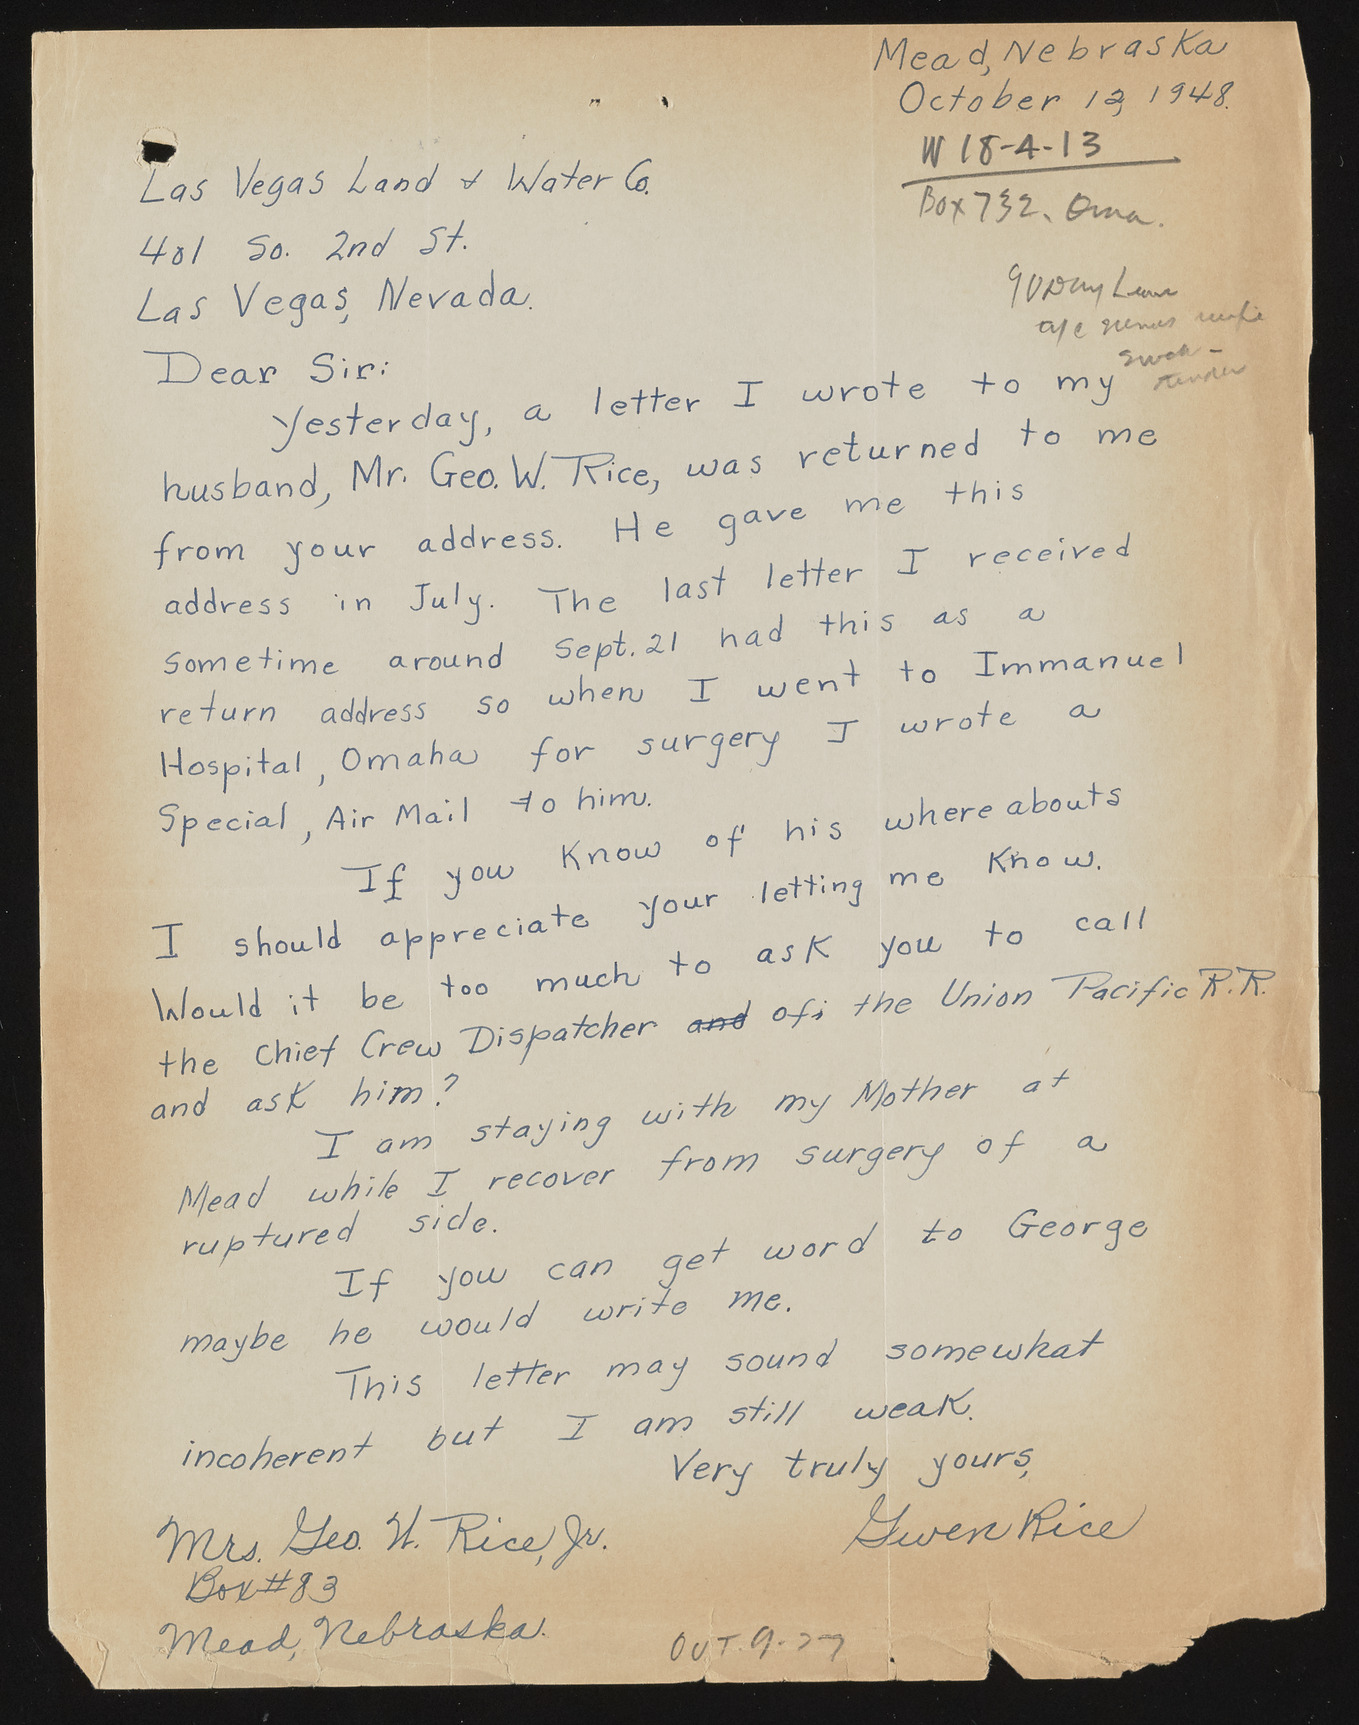 Mead, Nebraska
October 12, 1948.
W 18-4-13
Box 732, Oma.
Las Vegas Land & Water Co.
401 So. 2nd St.
Las Vegas, Nevada.
90 Day Leave
a/c
Dear Sir:
Yesterday, a letter I wrote to my
husband, Mr. Geo. W. Rice, was returned to me
from your address. He gave me this
address in July. The last letter I received
sometime around Sept. 21 had this as a
return address so when I went to Immanuel
Hospital, Omaha for surgery I wrote a
Special, Air Mail to him.
If you know of his whereabouts
I should appreciate your letting me know.
Would it be too much to ask you to call
the Chief Crew Dispatcher and of the Union Pacific R.R.
and ask him?
I am staying with my Mother at
Mead while I recover from surgery of a
ruptured side.
If you can get word to George
maybe he would write me.
This letter may sound somewhat
incoherent but I am still weak.
Very truly yours,
Gwen Rice
Mrs. Geo. W. Rice, Jr.
Box #83
Mead, Nebraska.
OUT. 9-27